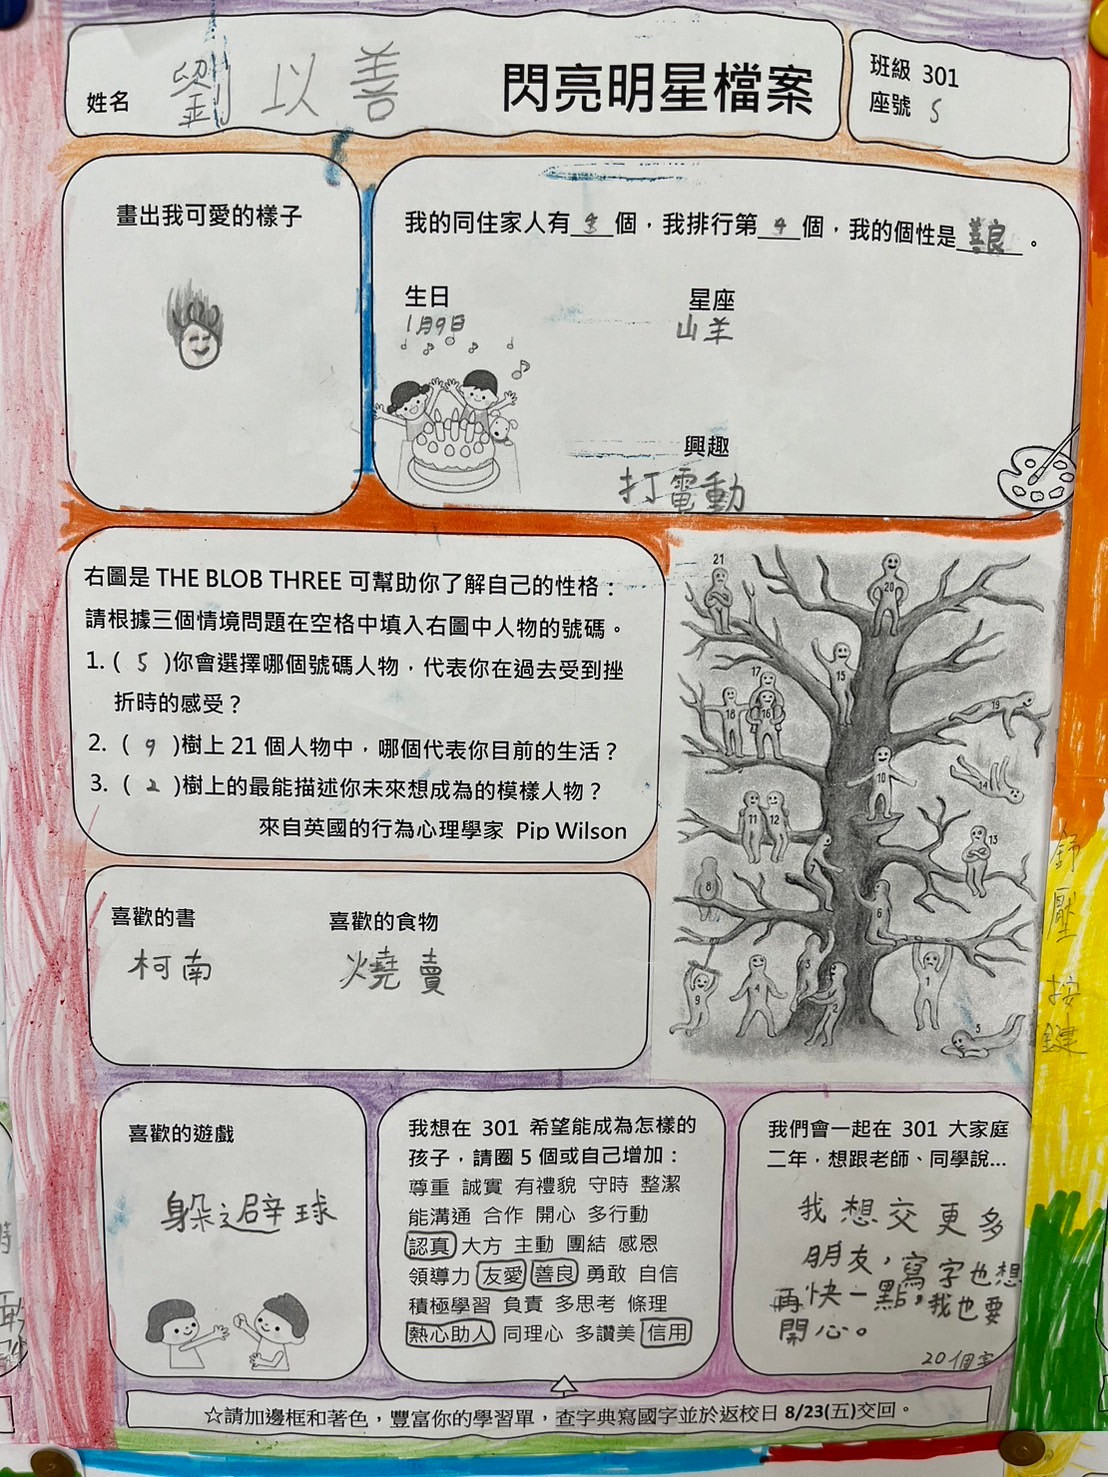 姓名 劉以善
閃亮明星檔案
班級 301
座號 5
畫出我可愛的樣子
我的同住家人有 個，我排行第 4 個，我的個性是善良。
生日
1月9日
星座
山羊
興趣
打電動
右圖是 THE BLOB THREE 可幫助你了解自己的性格：
請根據三個情境問題在空格中填入右圖中人物的號碼。
1. ( 5 )你會選擇哪個號碼人物，代表你在過去受到挫
折時的感受？
2. ( 9 )樹上 21 個人物中，哪個代表你目前的生活？
3. ( 2 )樹上的最能描述你未來想成為的模樣人物？
來自英國的行為心理學家 Pip Wilson
21
20
17
15
18
16
19
10
14
11
12
13
8
6
3
9
4
2
1
5
喜歡的書
柯南
喜歡的食物
燒賣
喜歡的遊戲
躲避球
我想在 301 希望能成為怎樣的
孩子，請圈 5 個或自己增加：
尊重 誠實 有禮貌 守時 整潔
能溝通 合作 開心 多行動
認真 大方 主動 團結 感恩
領導力 友愛 善良 勇敢 自信
積極學習 負責 多思考 條理
熱心助人 同理心 多讚美 信用
我們會一起在 301 大家庭
二年，想跟老師、同學說...
我想交更多
朋友，寫字也想
再快一點，我也要
開心。
20個字
☆請加邊框和著色，豐富你的學習單，查字典寫國字並於返校日 8/23(五)交回。
壓
按
鍵